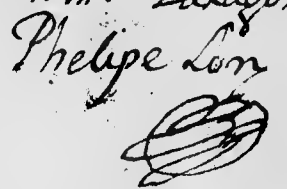 Phelipe Lon